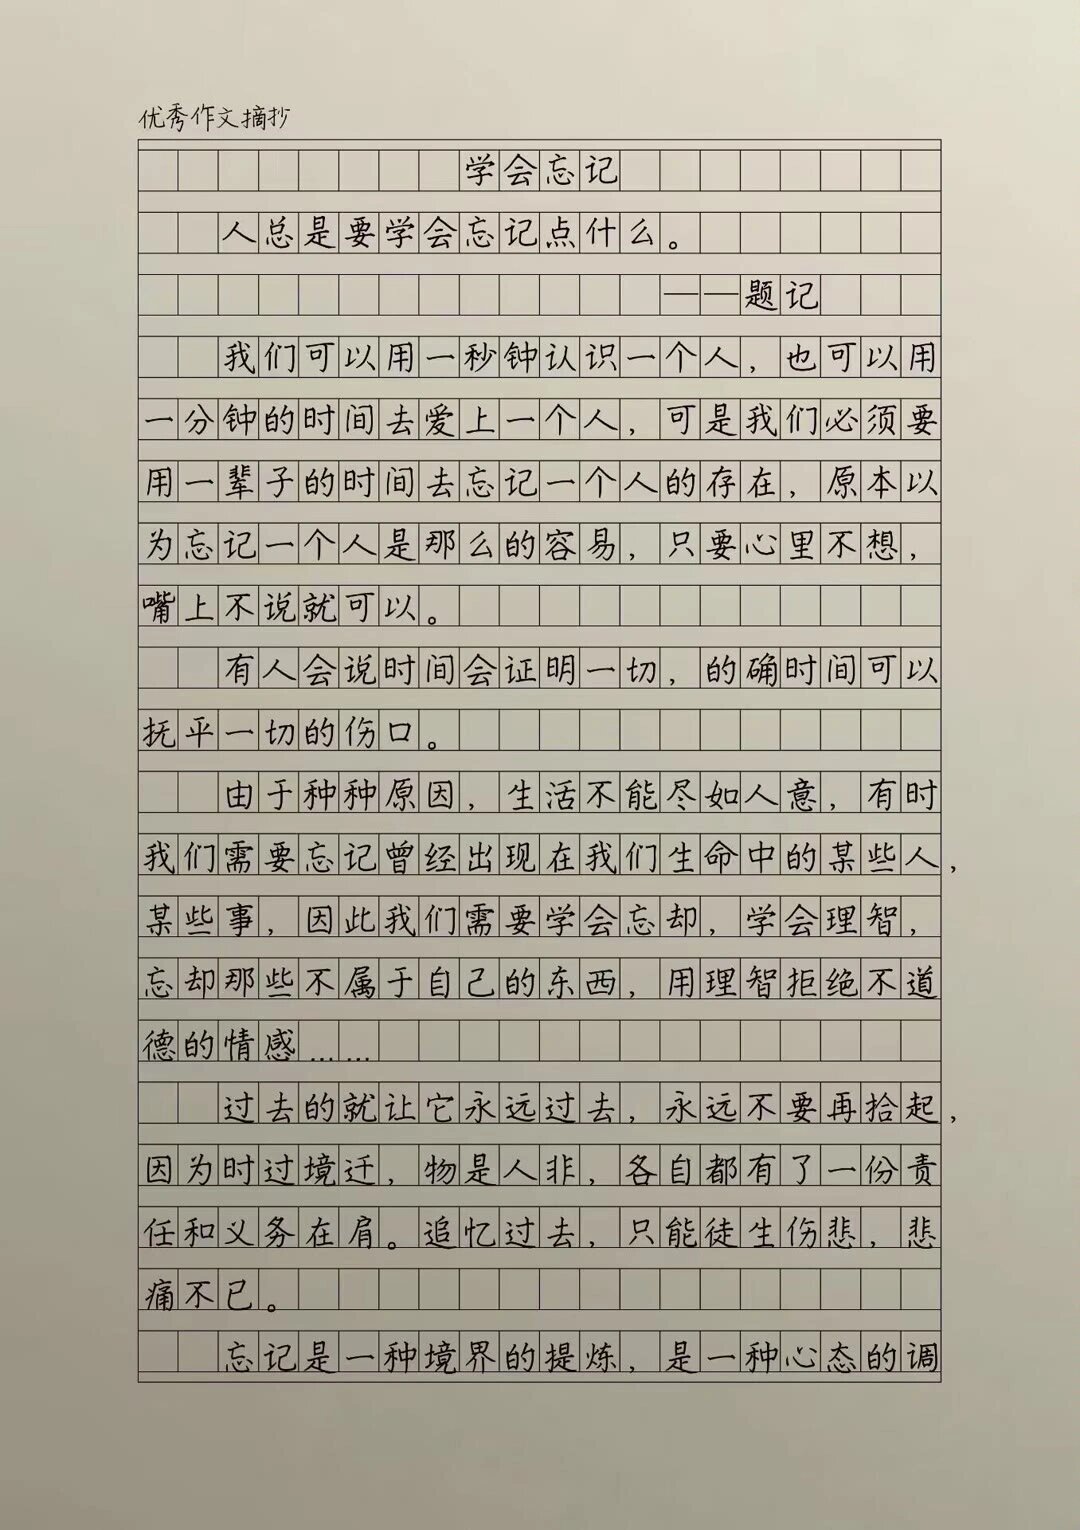 优秀作文摘抄
学会忘记
人总是要学会忘记点什么。
——题记
我们可以用一秒钟认识一个人，也可以用
一分钟的时间去爱上一个人，可是我们必须要
用一辈子的时间去忘记一个人的存在，原本以
为忘记一个人是那么的容易，只要心里不想，
嘴上不说就可以。
有人会说时间会证明一切，的确时间可以
抚平一切的伤口。
由于种种原因，生活不能尽如人意，有时
我们需要忘记曾经出现在我们生命中的某些人，
某些事，因此我们需要学会忘却，学会理智，
忘却那些不属于自己的东西，用理智拒绝不道
德的情感……
过去的就让它永远过去，永远不要再拾起，
因为时过境迁，物是人非，各自都有了一份责
任和义务在肩。追忆过去，只能徒生伤悲，悲
痛不已。
忘记是一种境界的提炼，是一种心态的调